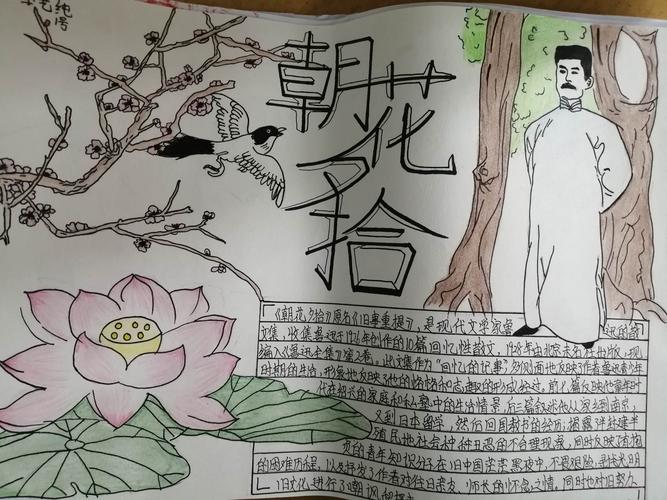 纯
朝花夕拾
《朝花夕拾》原名《旧事重提》,是现代文学家鲁迅的散
文集,收集鲁迅于1926年创作的10篇回忆性散文,1928年由北京未名社出版,现
编入《鲁迅全集》第2卷。此文集作为“回忆的记事”多侧面地反映了作者鲁迅青少年
时期的生活,形象地反映了他的性格和志趣的形成经过。前七篇反映他童年时
代在绍兴的家庭和私塾中的生活情景,后三篇叙述他从家乡到南京,
又到日本留学,然后回国教书的经历;揭露了半封建半
殖民地社会种种丑恶的不合理现象,同时反映了有抱
负的青年知识分子在旧中国茫茫黑夜中,不畏艰险,寻找光明
的困难历程,以及抒发了作者对往日亲友、师长的怀念之情,同时也对旧势力、
旧文化进行了嘲讽和抨击